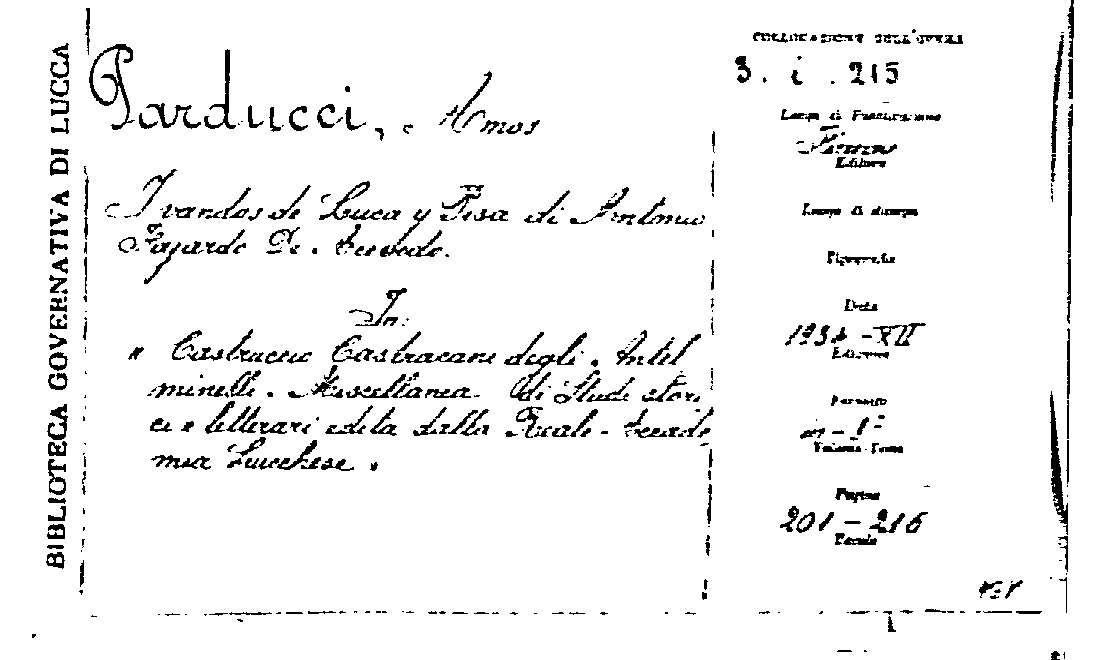 BIBLIOTECA GOVERNATIVA DI LUCCA
Parducci, Amos
I vandos de Luca y Pisa di Antonio
Fajardo De Acevedo.
In:
" Castruccio Castracane degli Antel
minelli. Miscellanea di Studi stori
ci e letterari edita dalla Reale Accade
mia Lucchese "
COLLOCAZIONE DELL'OPERA
3. i. 215
Luogo di Pubblicazione
Firenze
Editore
Luogo di stampa
Tipografia
Data
1934-XII
Edizione
Formato
Volume-Tomo
Pagine
201-216
Tavole